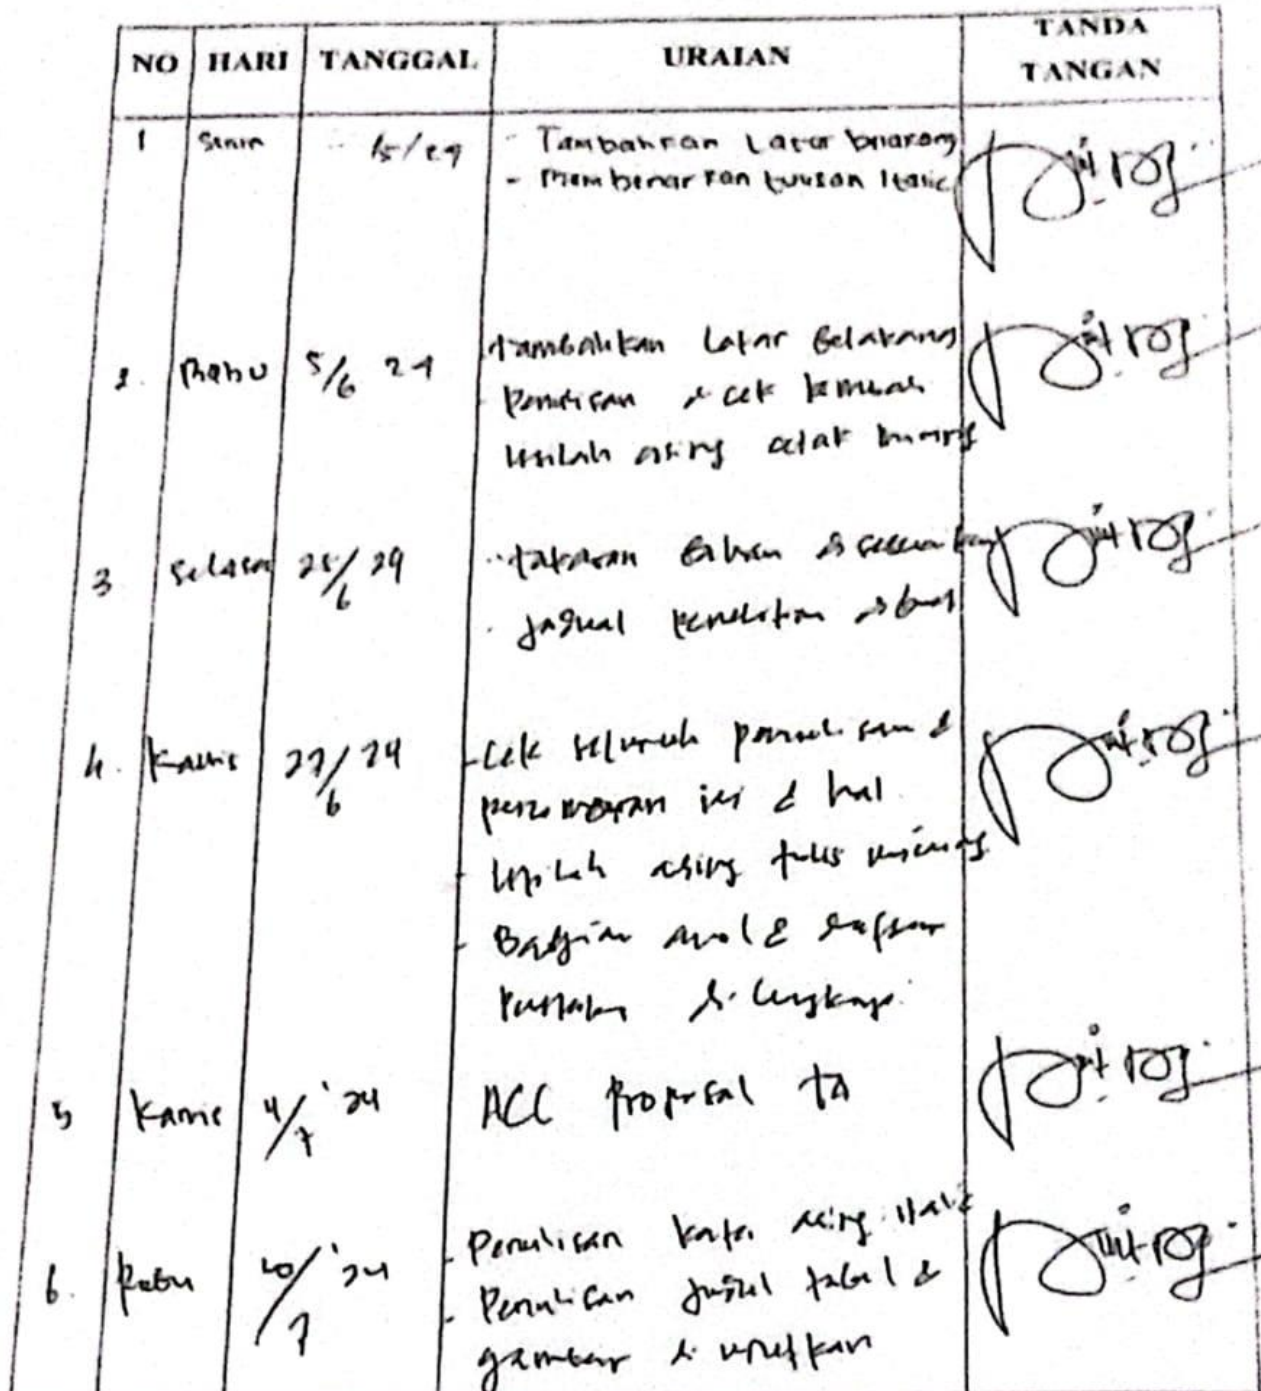 NO HARI TANGGAL URAIAN TANDA TANGAN
1 Senin /5/24 - Tambahkan Latar belakang
- Membenarkan tulisan Italic
2. Rabu 5/6 24 tambahkan Latar Belakang
Penulisan di cek kembali
Istilah asing cetak miring
3 Selasa 25/6 24 - takaran bahan disesuaikan
- jadwal penelitian dibuat
4. Kamis 27/6 24 - Cek seluruh penulisan &
penomoran isi & hal
- Istilah asing tulis miring
- Bagian awal & daftar
Pustaka di lengkapi
5 Kamis 4/7 '24 ACC Proposal TA
6. Rabu 10/7 '24 - Penulisan kata asing italic
- Penulisan judul tabel &
gambar di